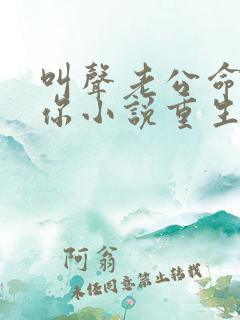 叫聲老公命
你小說重生
阿翁
未经同意禁止转载